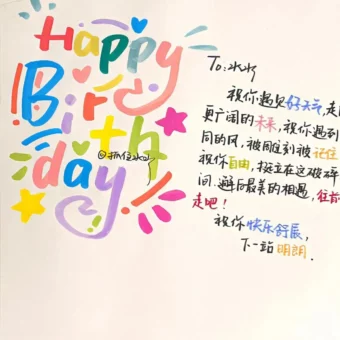 Happy
Birth
day
@抓住水水
To:水水
祝你遇见好天气,走
更广阔的未来,祝你遇到
同的风,被雕刻被记住
祝你自由,挺立在这破碎
间,避后最美的相遇,往前
走吧!
祝你快乐舒展,
下一站明朗.